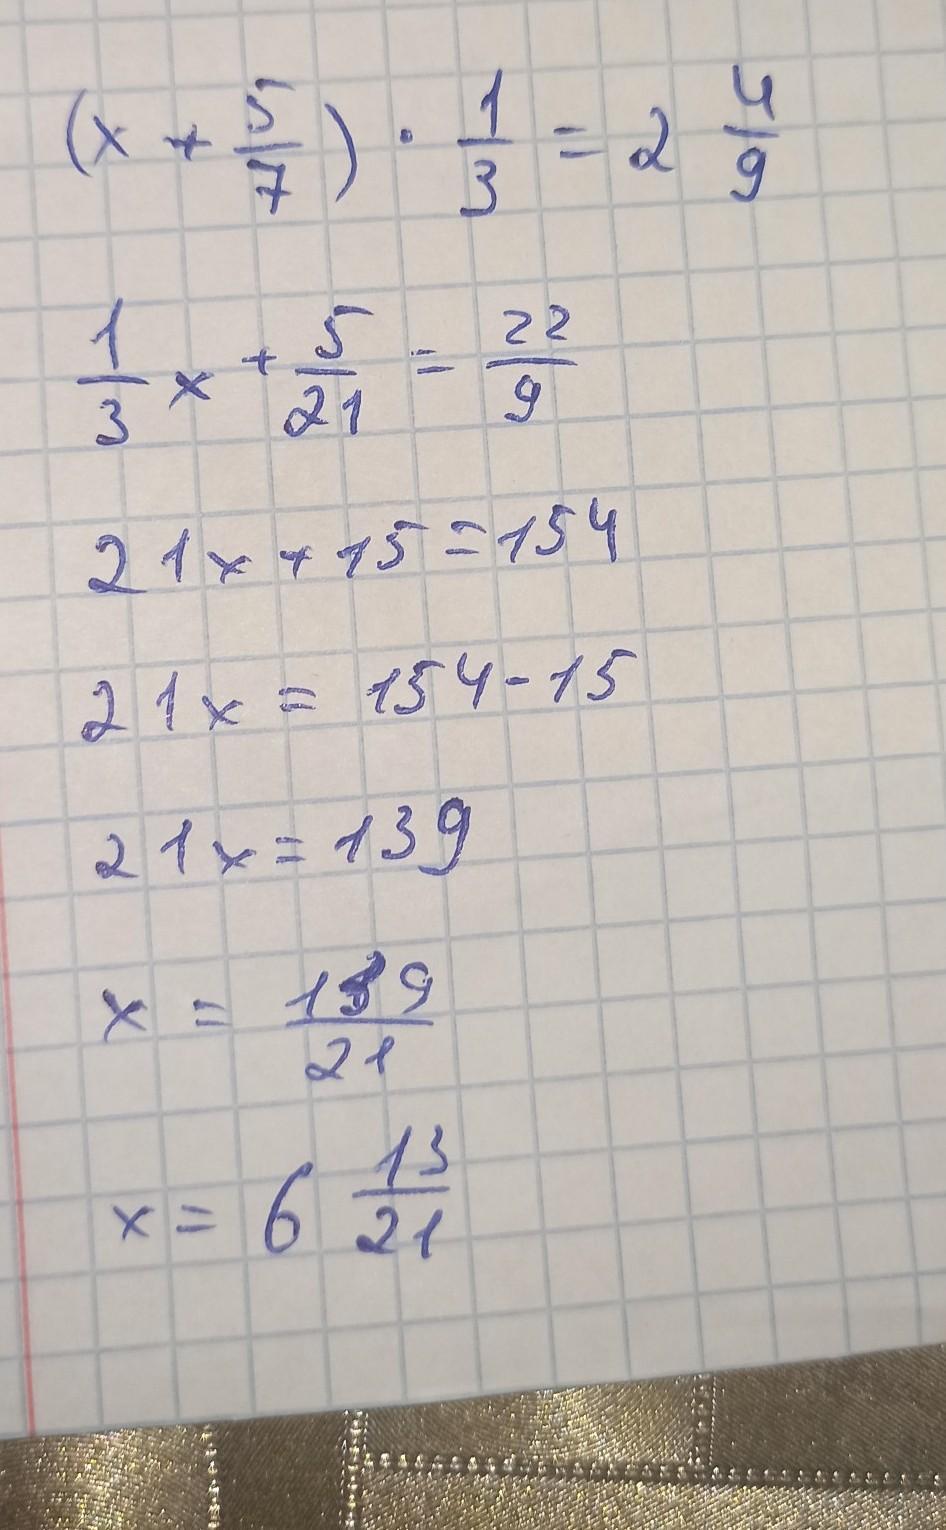 (x + 5/7) · 1/3 = 2 4/9
1/3 x + 5/21 = 22/9
21x + 15 = 154
21x = 154 - 15
21x = 139
x = 139/21
x = 6 13/21